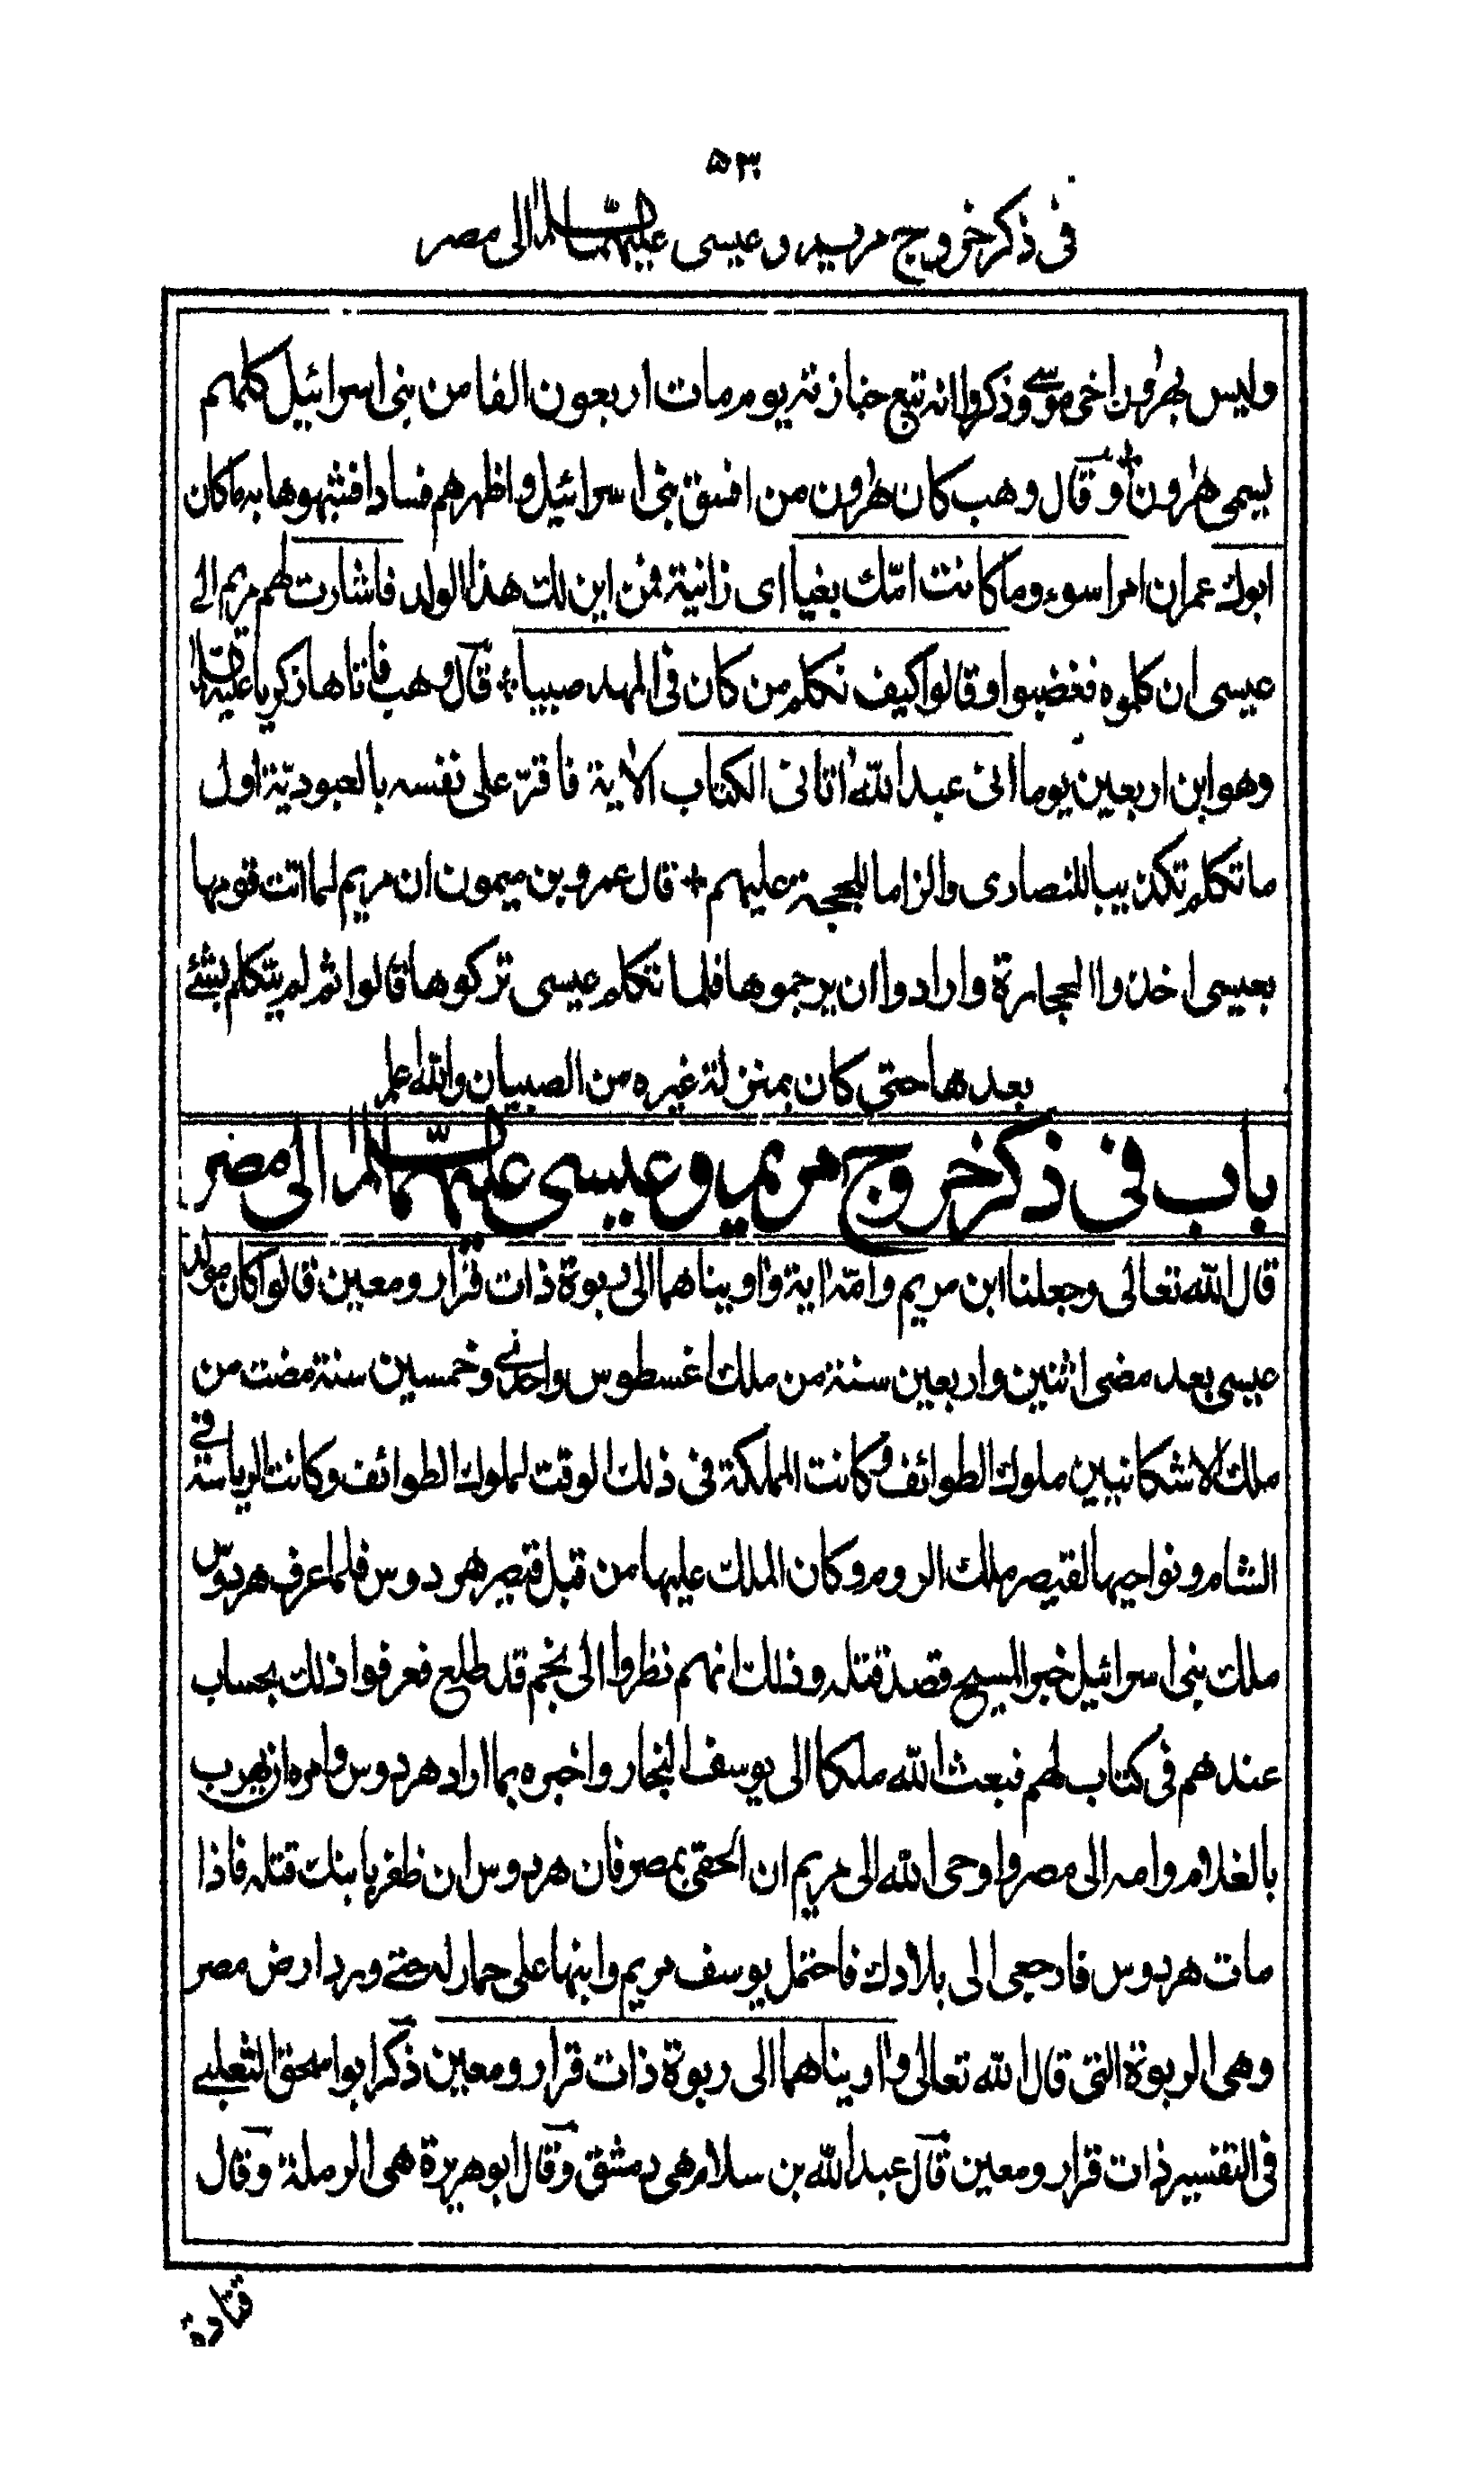 ٥٣
في ذكر خروج مريم و عيسى عليهما السلام الى مصر
وليس بهرون اخي موسى وذكروا انه تبع جنازته يوم مات اربعون الفا من بني اسرائيل كلهم
يسمى هرون + وقال وهب كان هرون من افسق بني اسرائيل واظهرهم فسادا فشبهوها به ما كان
ابوك عمران امرا سوء وما كانت امّك بغيا اى زانية فمن اين لك هذا الولد فاشارت لهم مريم الى
عيسى ان كلموه فغضبوا وقالوا كيف نكلم من كان في المهد صبيا + قال وهب فاتاها زكريا عليه السلام
وهو ابن اربعين يوما انى عبد الله اتانى الكتاب الاية فاقرّ على نفسه بالعبوديّة اول
ما تكلم تكذيبا للنصارى والزاما للحجة عليهم + قال عمرو بن ميمون ان مريم لما اتت قومها
بعيسى اخذوا الحجارة وارادوا ان يرجموها فلما تكلم عيسى تركوها قالوا ثم لم يتكلم بشئ
بعدها حتى كان بمنزلة غيره من الصبيان والله اعلم
باب في ذكر خروج مريم و عيسى عليهما السلام الى مصر
قال الله تعالى وجعلنا ابن مريم وامّه اية واوينا هما الى ربوة ذات قرار ومعين قالوا كان مولد
عيسى بعد مضى اثنين واربعين سنة من ملك اغسطوس واحدى وخمسين سنة مضت من
ملك الاشكانيين ملوك الطوائف وكانت المملكة في ذلك الوقت لملوك الطوائف وكانت الرياسة في
الشام ونواحيها لقيصر ملك الروم وكان الملك عليها من قبل قيصر هردوس فلما عرف هردوس
ملك بني اسرائيل خبر المسيح قصد قتله وذلك انهم نظروا الى نجم قد طلع فعرفوا ذلك بحساب
عندهم في كتاب لهم فبعث الله ملكا الى يوسف النجار واخبره بما اراد هردوس وامره ان يهرب
بالغلام وامه الى مصر واوحى الله الى مريم ان الحقى بمصر فان هردوس ان ظفر بابنك قتله فاذا
مات هردوس فارجعى الى بلادك فاحتمل يوسف مريم وابنها على حمار له حتى ورد ارض مصر
وهى الربوة التى قال الله تعالى واوينا هما الى ربوة ذات قرار ومعين ذكر ابو اسحق الثعلبى
في التفسير ذات قرار ومعين قال عبد الله بن سلام هى دمشق وقال ابو هريرة هى الرملة وقال
قتادة